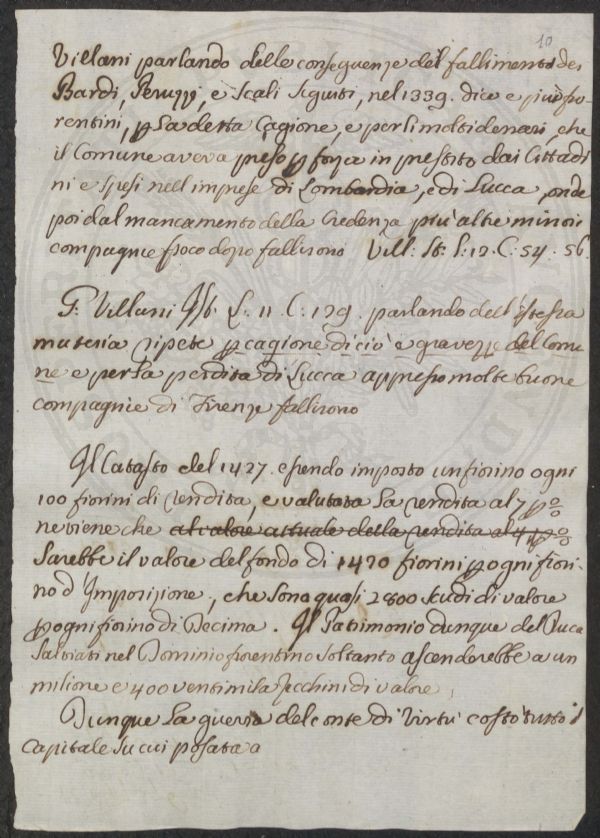 10
Villani parlando delle conseguenze del fallimento dei
Bardi, Peruzzi, e Scali seguiti, nel 1339. dice e più fio-
rentini, p la detta Cagione, e per li molti denari, che
il Comune aveva preso p forza in prestito dai Cittadi
ni e spesi nell imprese di Lombardia, e di Lucca, onde
poi dal mancamento della Credenza più altre minori
compagnie poco dopo fallirono Vill: St: L: 12. C: 54. 56.
G. Villani L. 11. C. 129. parlando dell istessa
materia ripete p cagione di ciò e gravezze del Comu
ne e per la perdita di Lucca appresso molte buone
compagnie di Firenze fallirono
Il Catasto del 1427. essendo imposto un fiorino ogni
100 fiorini di rendita, e valutata la rendita al 7 p %
ne viene che al valore attuale della rendita al 4 p %
Sarebbe il valore del fondo di 1470 fiorini p ogni fiori-
no d Imposizione, che sono quasi 2800 scudi di valore
p ogni fiorino di Decima. Il Patrimonio dunque del Duca
Salviati nel Dominio fiorentino soltanto ascenderebbe a un
milione e 400 ventimila zecchini di valore,
Dunque la guerra del conte di Virtù costò tutto il
Capitale su cui posata a